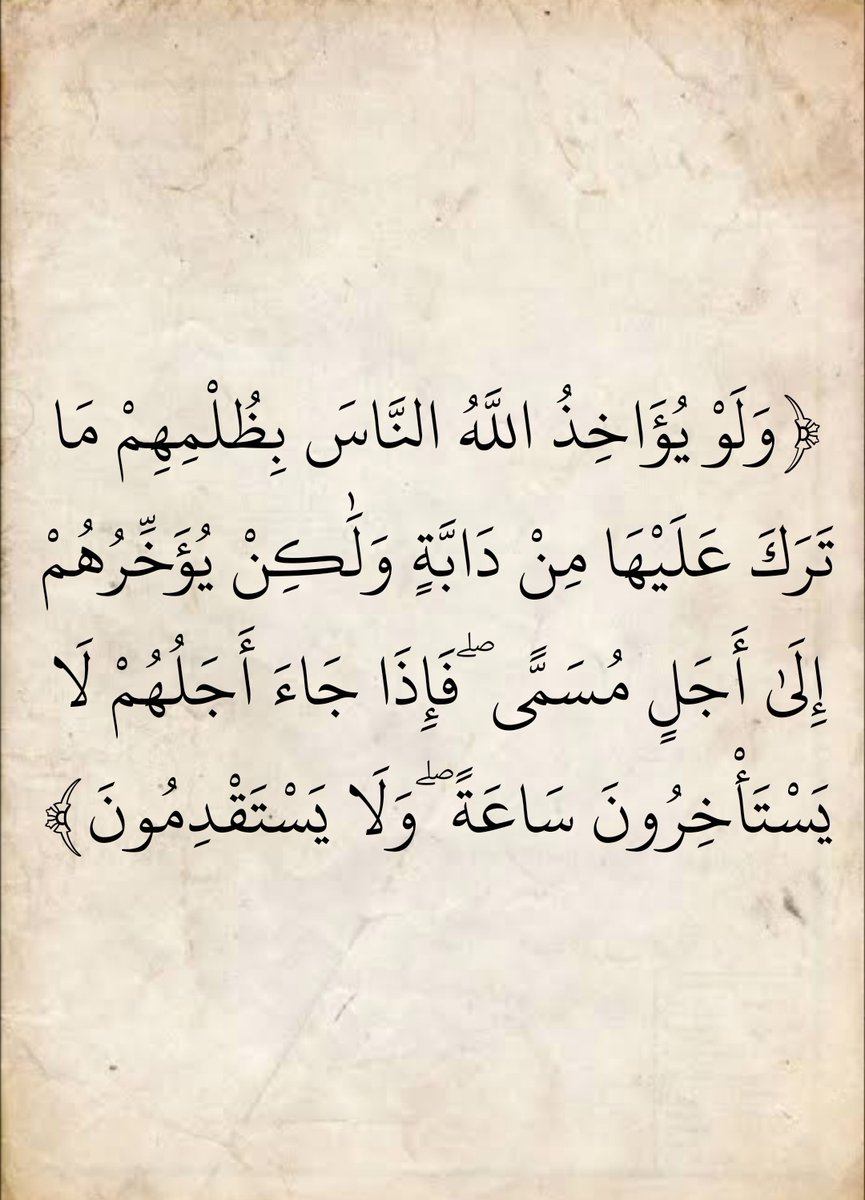 ﴿وَلَوْ يُؤَاخِذُ اللَّهُ النَّاسَ بِظُلْمِهِمْ مَا
تَرَكَ عَلَيْهَا مِنْ دَابَّةٍ وَلَٰكِنْ يُؤَخِّرُهُمْ
إِلَىٰ أَجَلٍ مُسَمًّى ۖ فَإِذَا جَاءَ أَجَلُهُمْ لَا
يَسْتَأْخِرُونَ سَاعَةً ۖ وَلَا يَسْتَقْدِمُونَ﴾